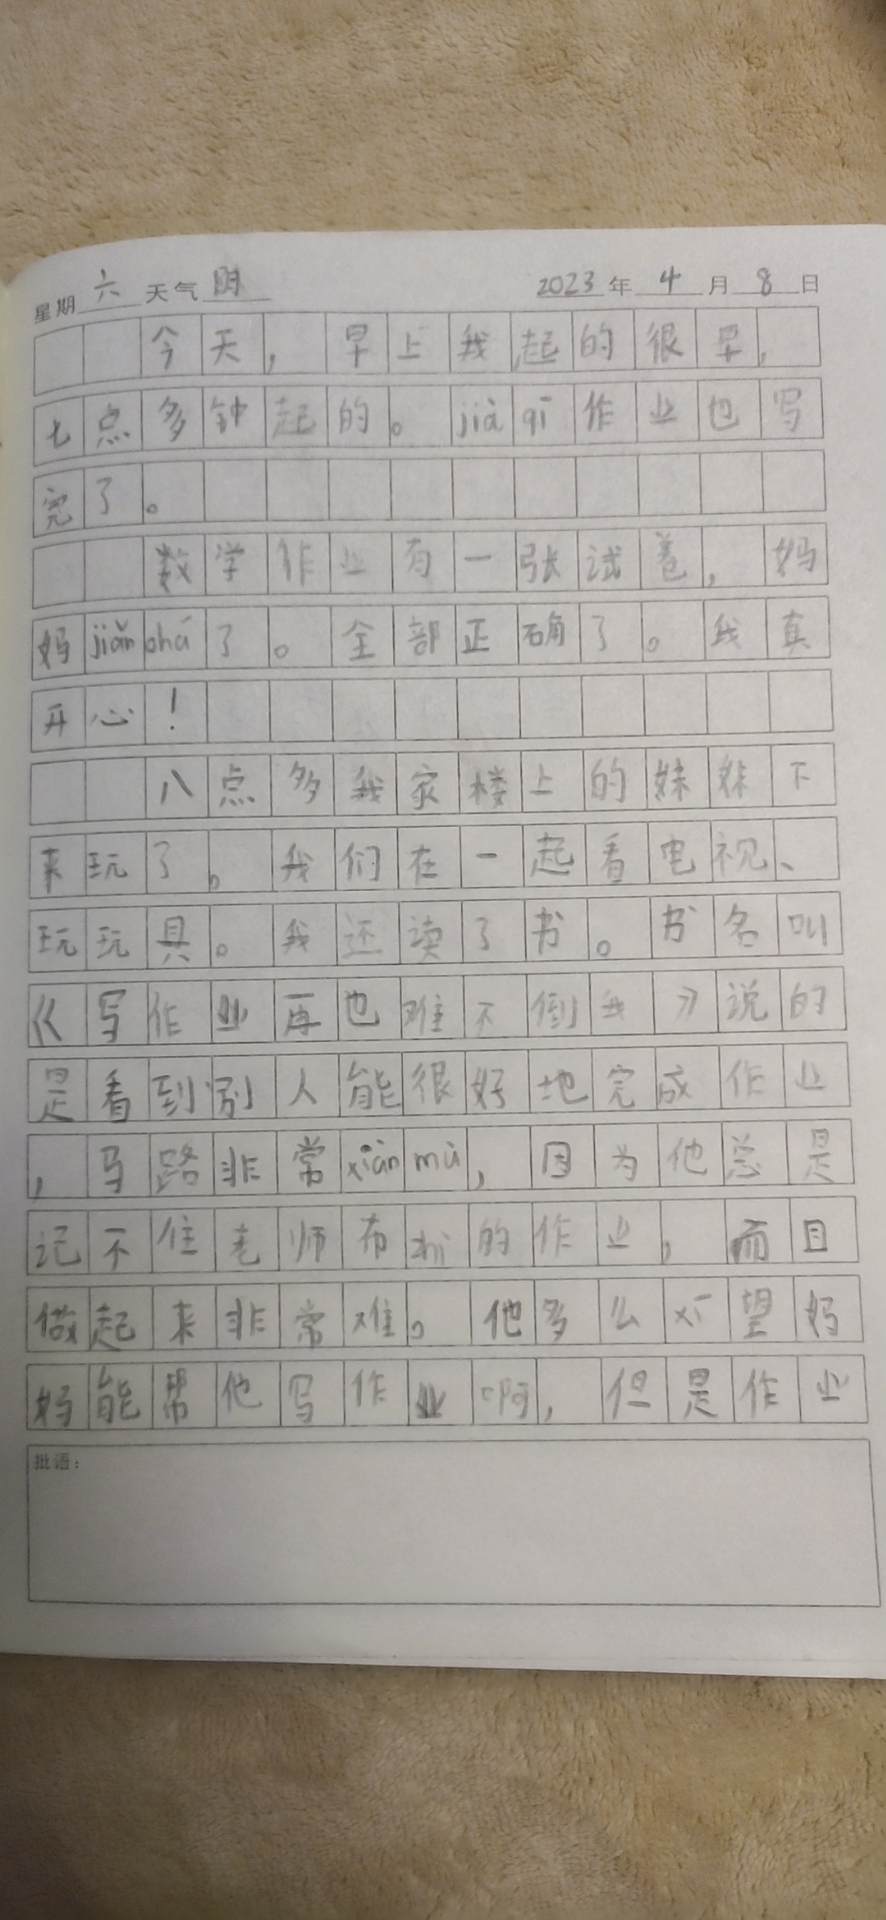 星期六天气阴 2023年4月8日
今天，早上我起的很早，
七点多钟起的。jià qī作业也写
完了。
数学作业有一张试卷，妈
妈jiǎn chá了。全部正确了。我真
开心！
八点多我家楼上的妹妹下
来玩了。我们在一起看电视、
玩玩具。我还读了书。书名叫
《写作业再也难不倒我》说的
是看到别人能很好地完成作业
，马路非常xiàn mù，因为他总是
记不住老师布zhì的作业，而且
做起来非常难。他多么xī望妈
妈能帮他写作业啊，但是作业
批语：